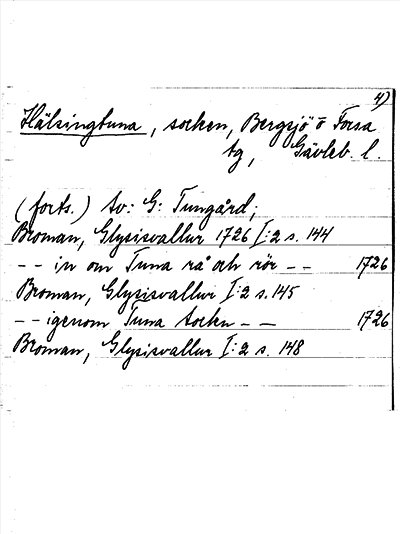 4)
Hälsingtuna, socken, Bergsjö o Forsa
tg, Gävleb. l.
(forts.) Av: G: Tungård;
Broman, Glysisvallur 1726 I:2 s. 144
-- in om Tuna rå och rör -- 1726
Broman, Glysisvallur I:2 s. 145
-- igenom Tuna Sockn -- 1726
Broman, Glysisvallur I:2 s. 148